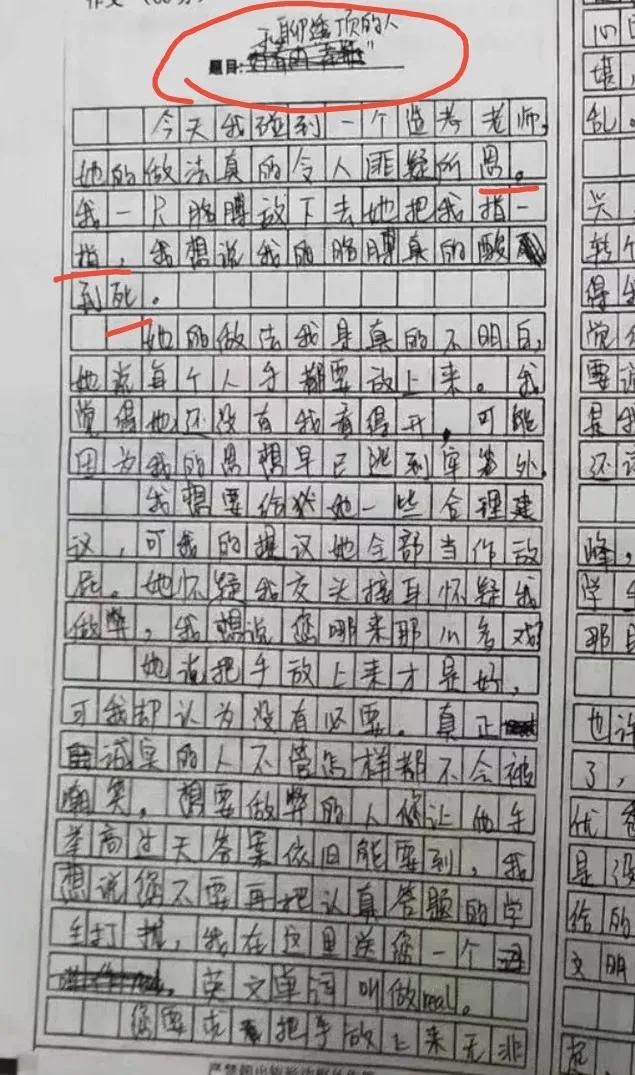 作文
无聊透顶的人
题目:
今天我碰到一个监考老师,
她的做法真的令人匪疑所思。
我一只胳膊放下去她把我指一
指,我想说我的胳膊真的酸
到死。
她的做法我是真的不明白,
她说每个人手都要放上来。我
觉得她还没有我看得开,可能
因为我的思想早已逃到室外.
我想要给她一些合理建
议,可我的提议她全部当作放
屁。她怀疑我交头接耳怀疑我
做弊,我想说您哪来那么多戏?
她说把手放上来才是好,
可我却认为没有必要。真正
诚实的人不管怎样都不会被
嘲笑。想要做弊的人你让他手
举高过天答案依旧能要到,我
想说您不要再把认真答题的学
生打扰,我在这里送您一个
英文单词叫做real。
您要求把手放上来无非
心口
堪,
乱。
兴
转个
得
觉
要说
是我
还
峰,
学
那
也许
了,
优
是没
给的
文明